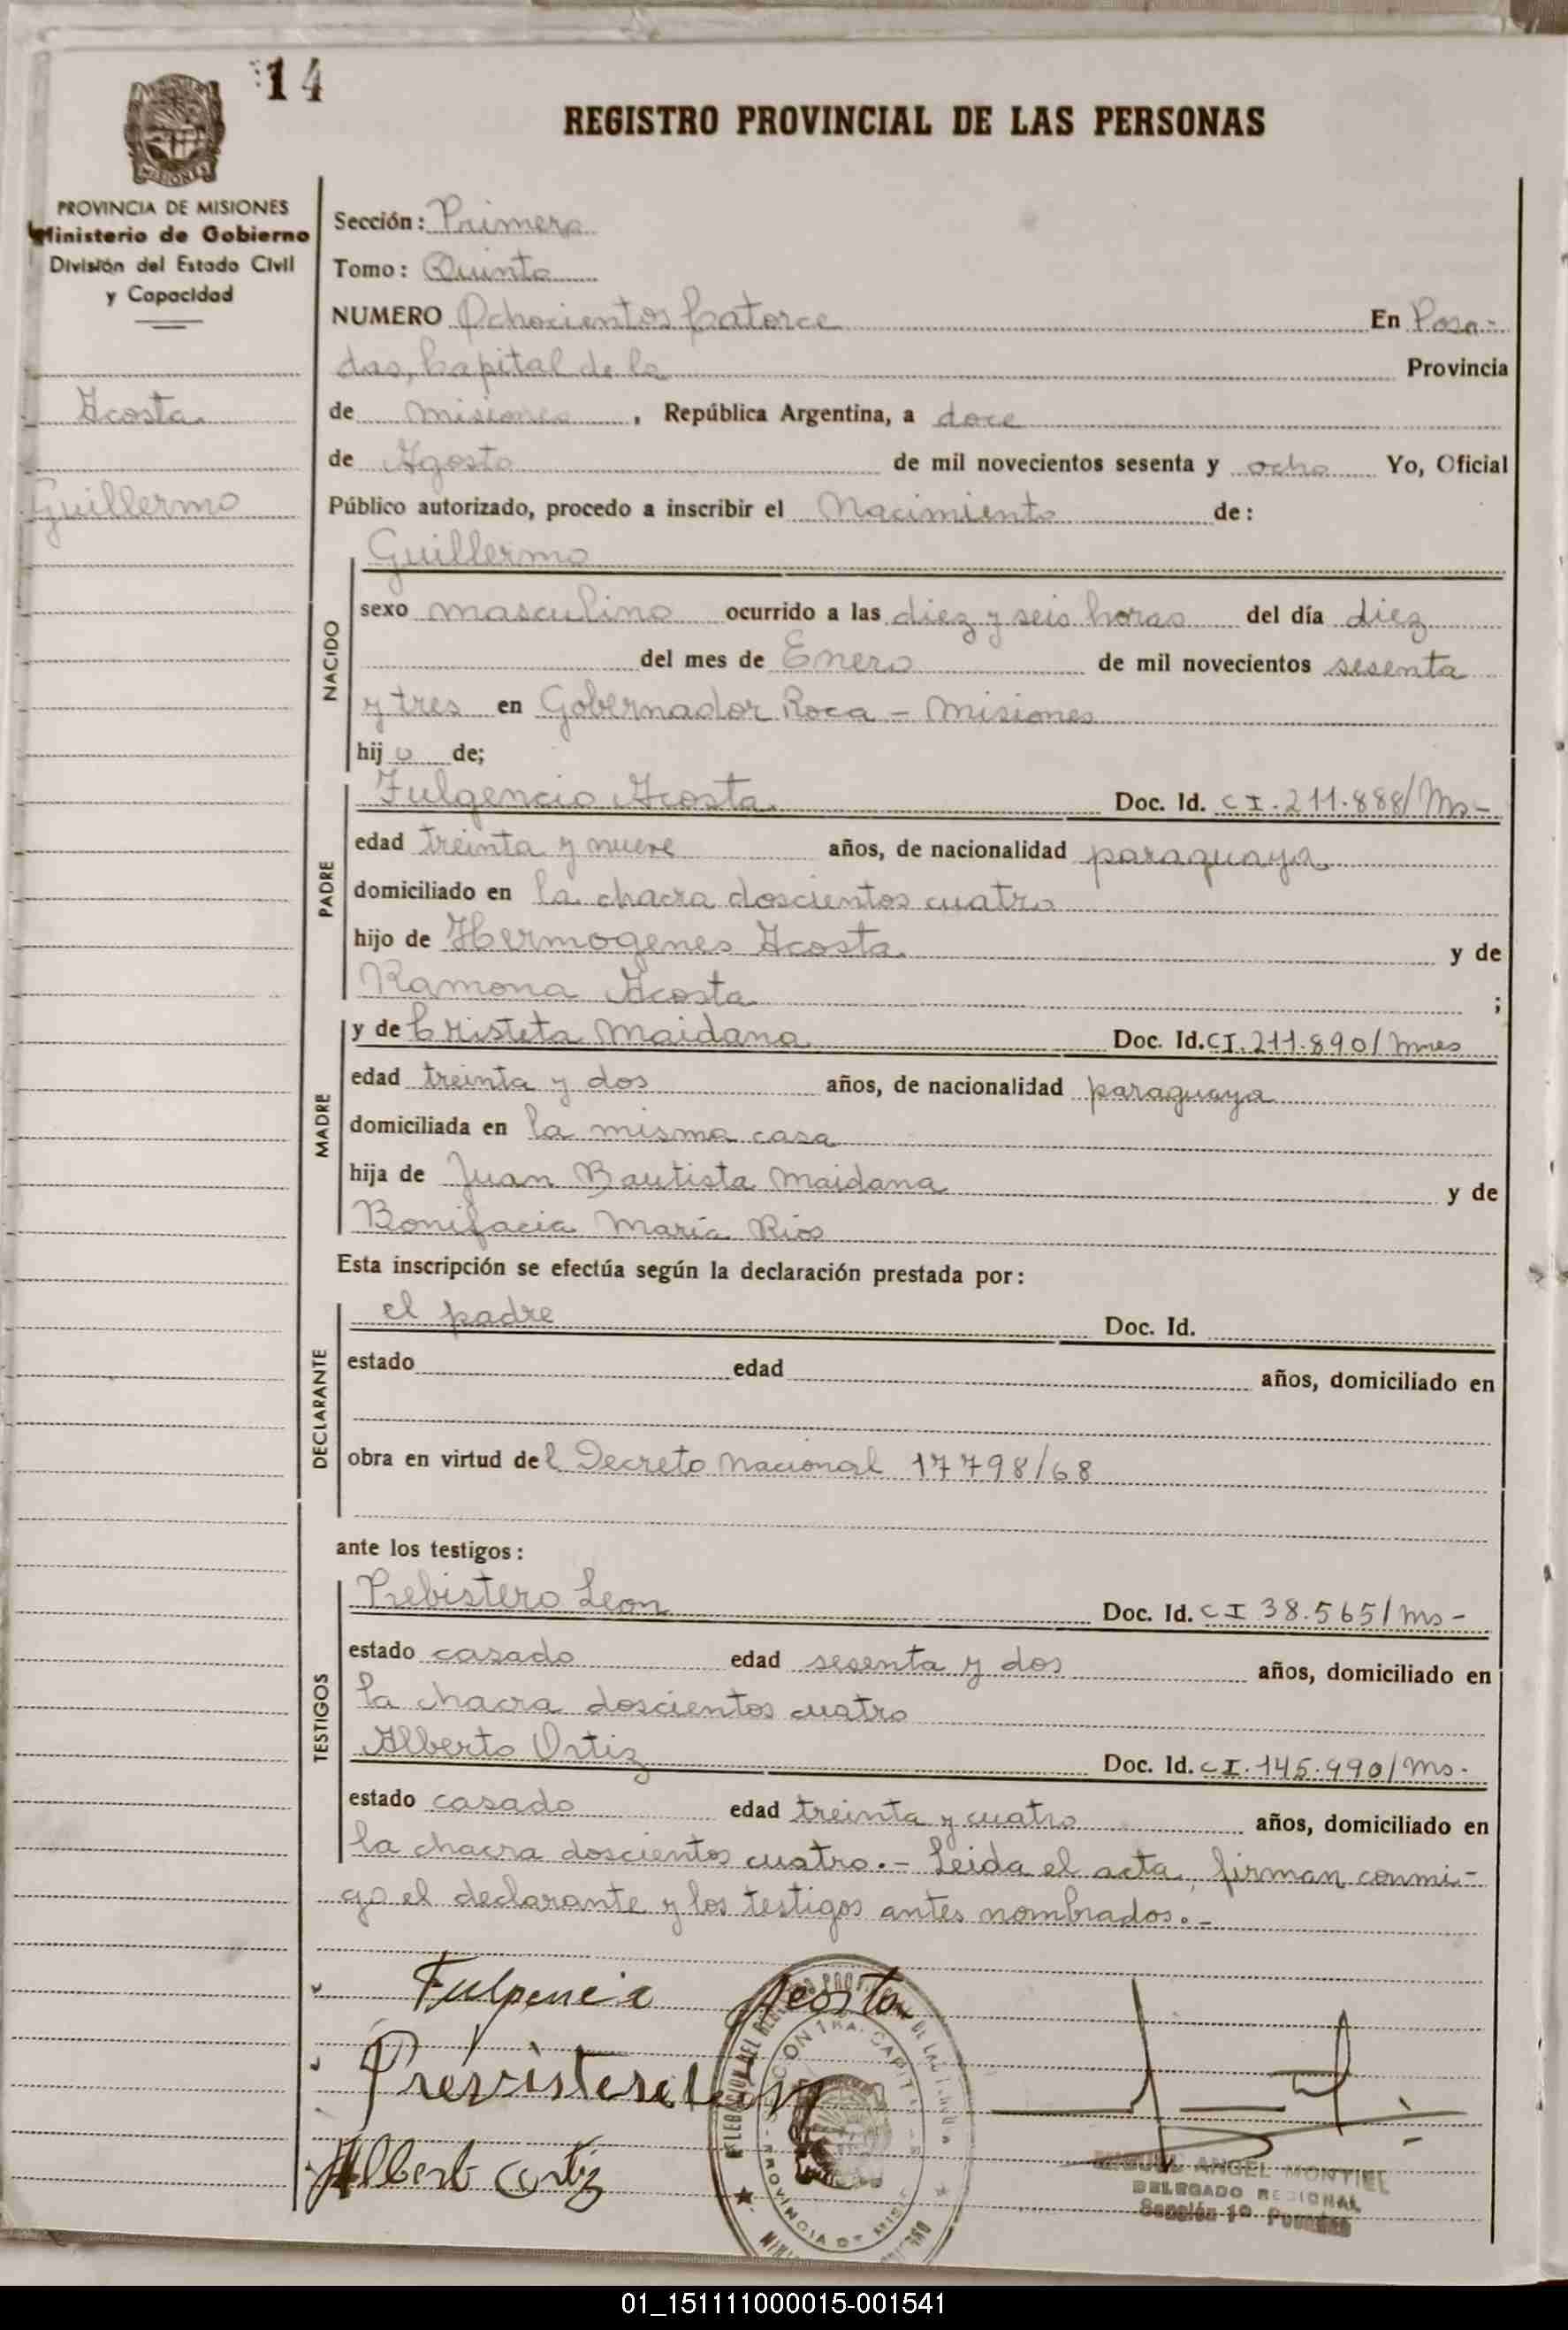 14
REGISTRO PROVINCIAL DE LAS PERSONAS
MISIONES
PROVINCIA DE MISIONES
Ministerio de Gobierno
División del Estado Civil
y Capacidad
Acosta
Guillermo
Sección: Primera
Tomo: Quinto
NUMERO Ochocientos Catorce En Posa-
das, Capital de la Provincia
de Misiones, República Argentina, a doce
de Agosto de mil novecientos sesenta y ocho Yo, Oficial
Público autorizado, procedo a inscribir el Nacimiento de:
NACIDO
Guillermo
sexo masculino ocurrido a las diez y seis horas del día diez
del mes de Enero de mil novecientos sesenta
y tres en Gobernador Roca - Misiones
hijo de;
PADRE
Fulgencio Acosta Doc. Id. CI.211.888/Ms-
edad treinta y nueve años, de nacionalidad paraguaya
domiciliado en la chacra doscientos cuatro
hijo de Hermogenes Acosta y de
Ramona Acosta ;
MADRE
y de Cristeta Maidana Doc. Id. CI.211.890/Mnes
edad treinta y dos años, de nacionalidad paraguaya
domiciliada en la misma casa
hija de Juan Bautista Maidana y de
Bonifacia María Rios
Esta inscripción se efectúa según la declaración prestada por:
DECLARANTE
el padre Doc. Id.
estado edad años, domiciliado en
obra en virtud del Decreto Nacional 17798/68
ante los testigos:
TESTIGOS
Prebistero Leon Doc. Id. CI 38.565/Ms-
estado casado edad sesenta y dos años, domiciliado en
la chacra doscientos cuatro
Alberto Ortiz Doc. Id. CI.145.990/Ms.
estado casado edad treinta y cuatro años, domiciliado en
la chacra doscientos cuatro.- Leida el acta, firman conmi-
go el declarante y los testigos antes nombrados.-
Fulgencio Acosta
Alberto Ortiz
PROVINCIA DE MISI
MIGUEL ANGEL MONTIEL
DELEGADO REGIONAL
Sección 1ª Posadas
01_151111000015-001541